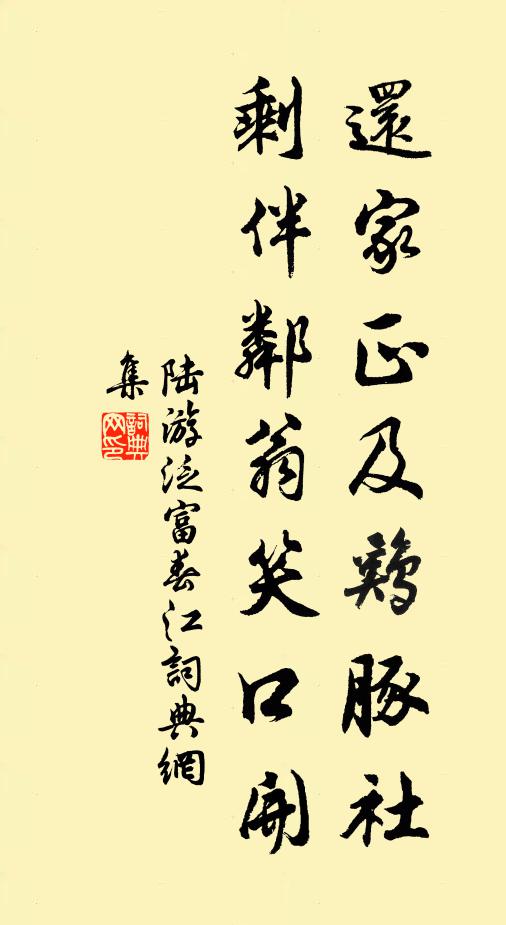 還家正及鷄豚社
剩伴鄰翁笑口開
陆游泛富春江詞典網
集
詞典
网印